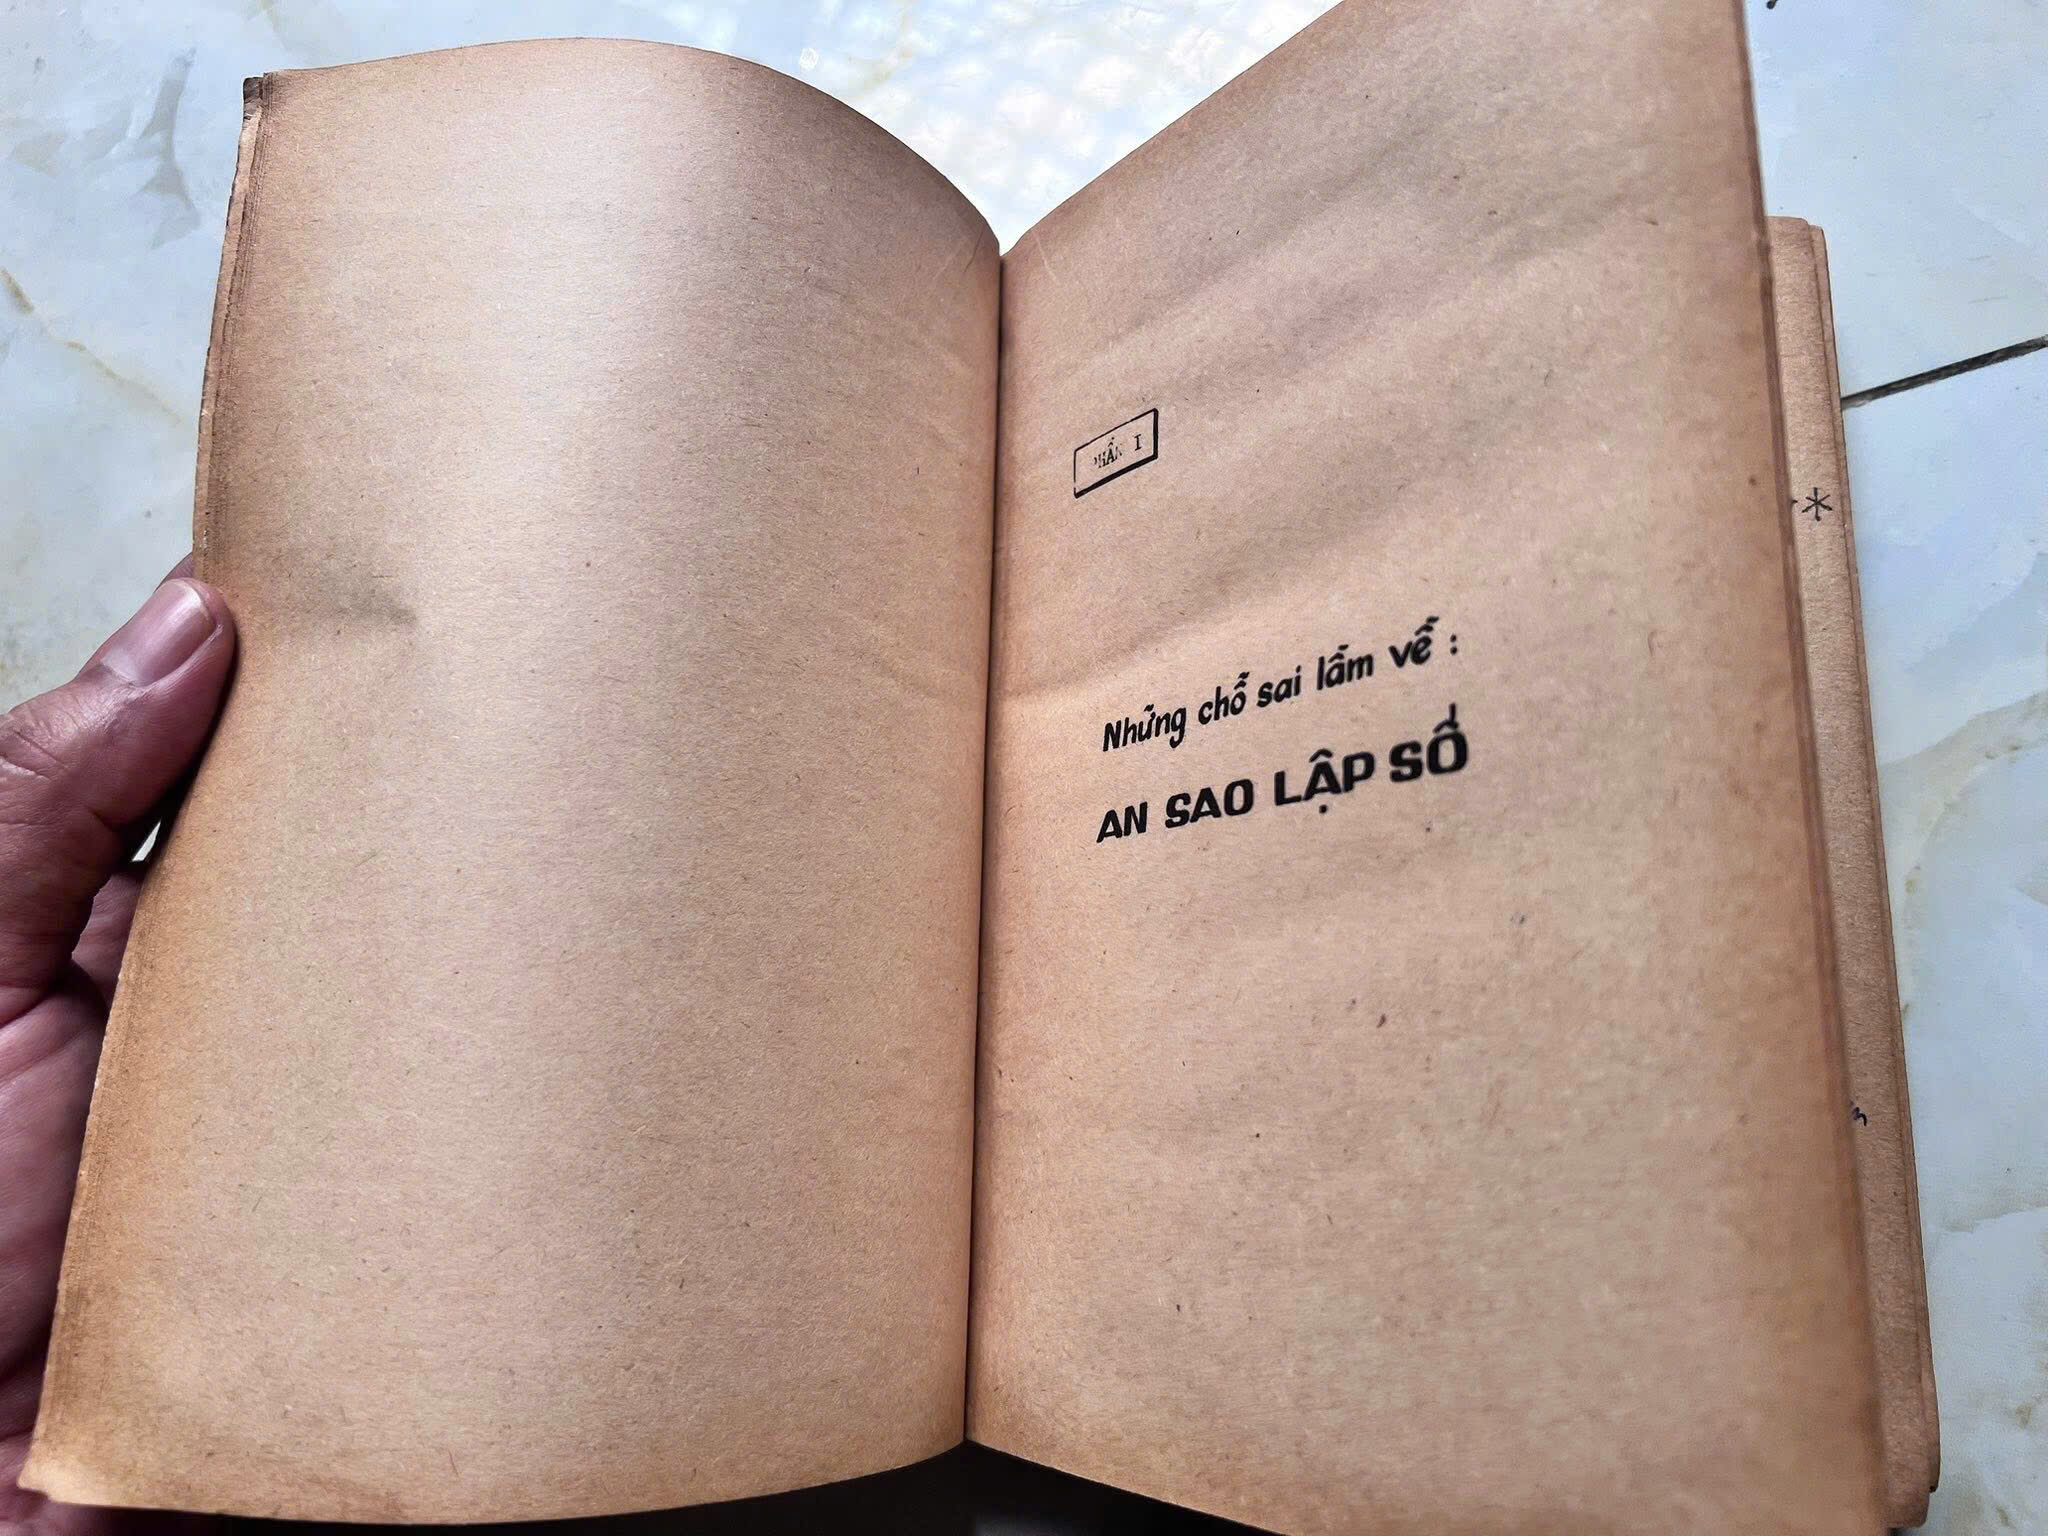 PHẦN I
Những chỗ sai lầm về :
AN SAO LẬP SỐ